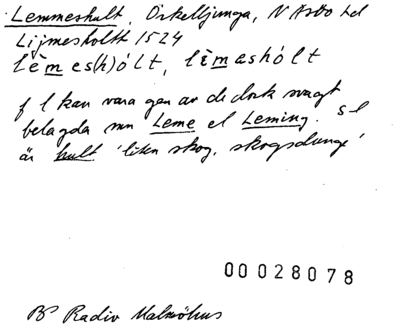 Lemmeshult, Örkelljunga, N Åsbo hd
Lijmesholtt 1524
lèmes(h)ólt, lèmeshólt
f l kan vara gen av de dock svagt
belagda mn Leme el Leming. s l
är hult 'liten skog, skogsdunge'
00028078
Br Radio Malmöhus